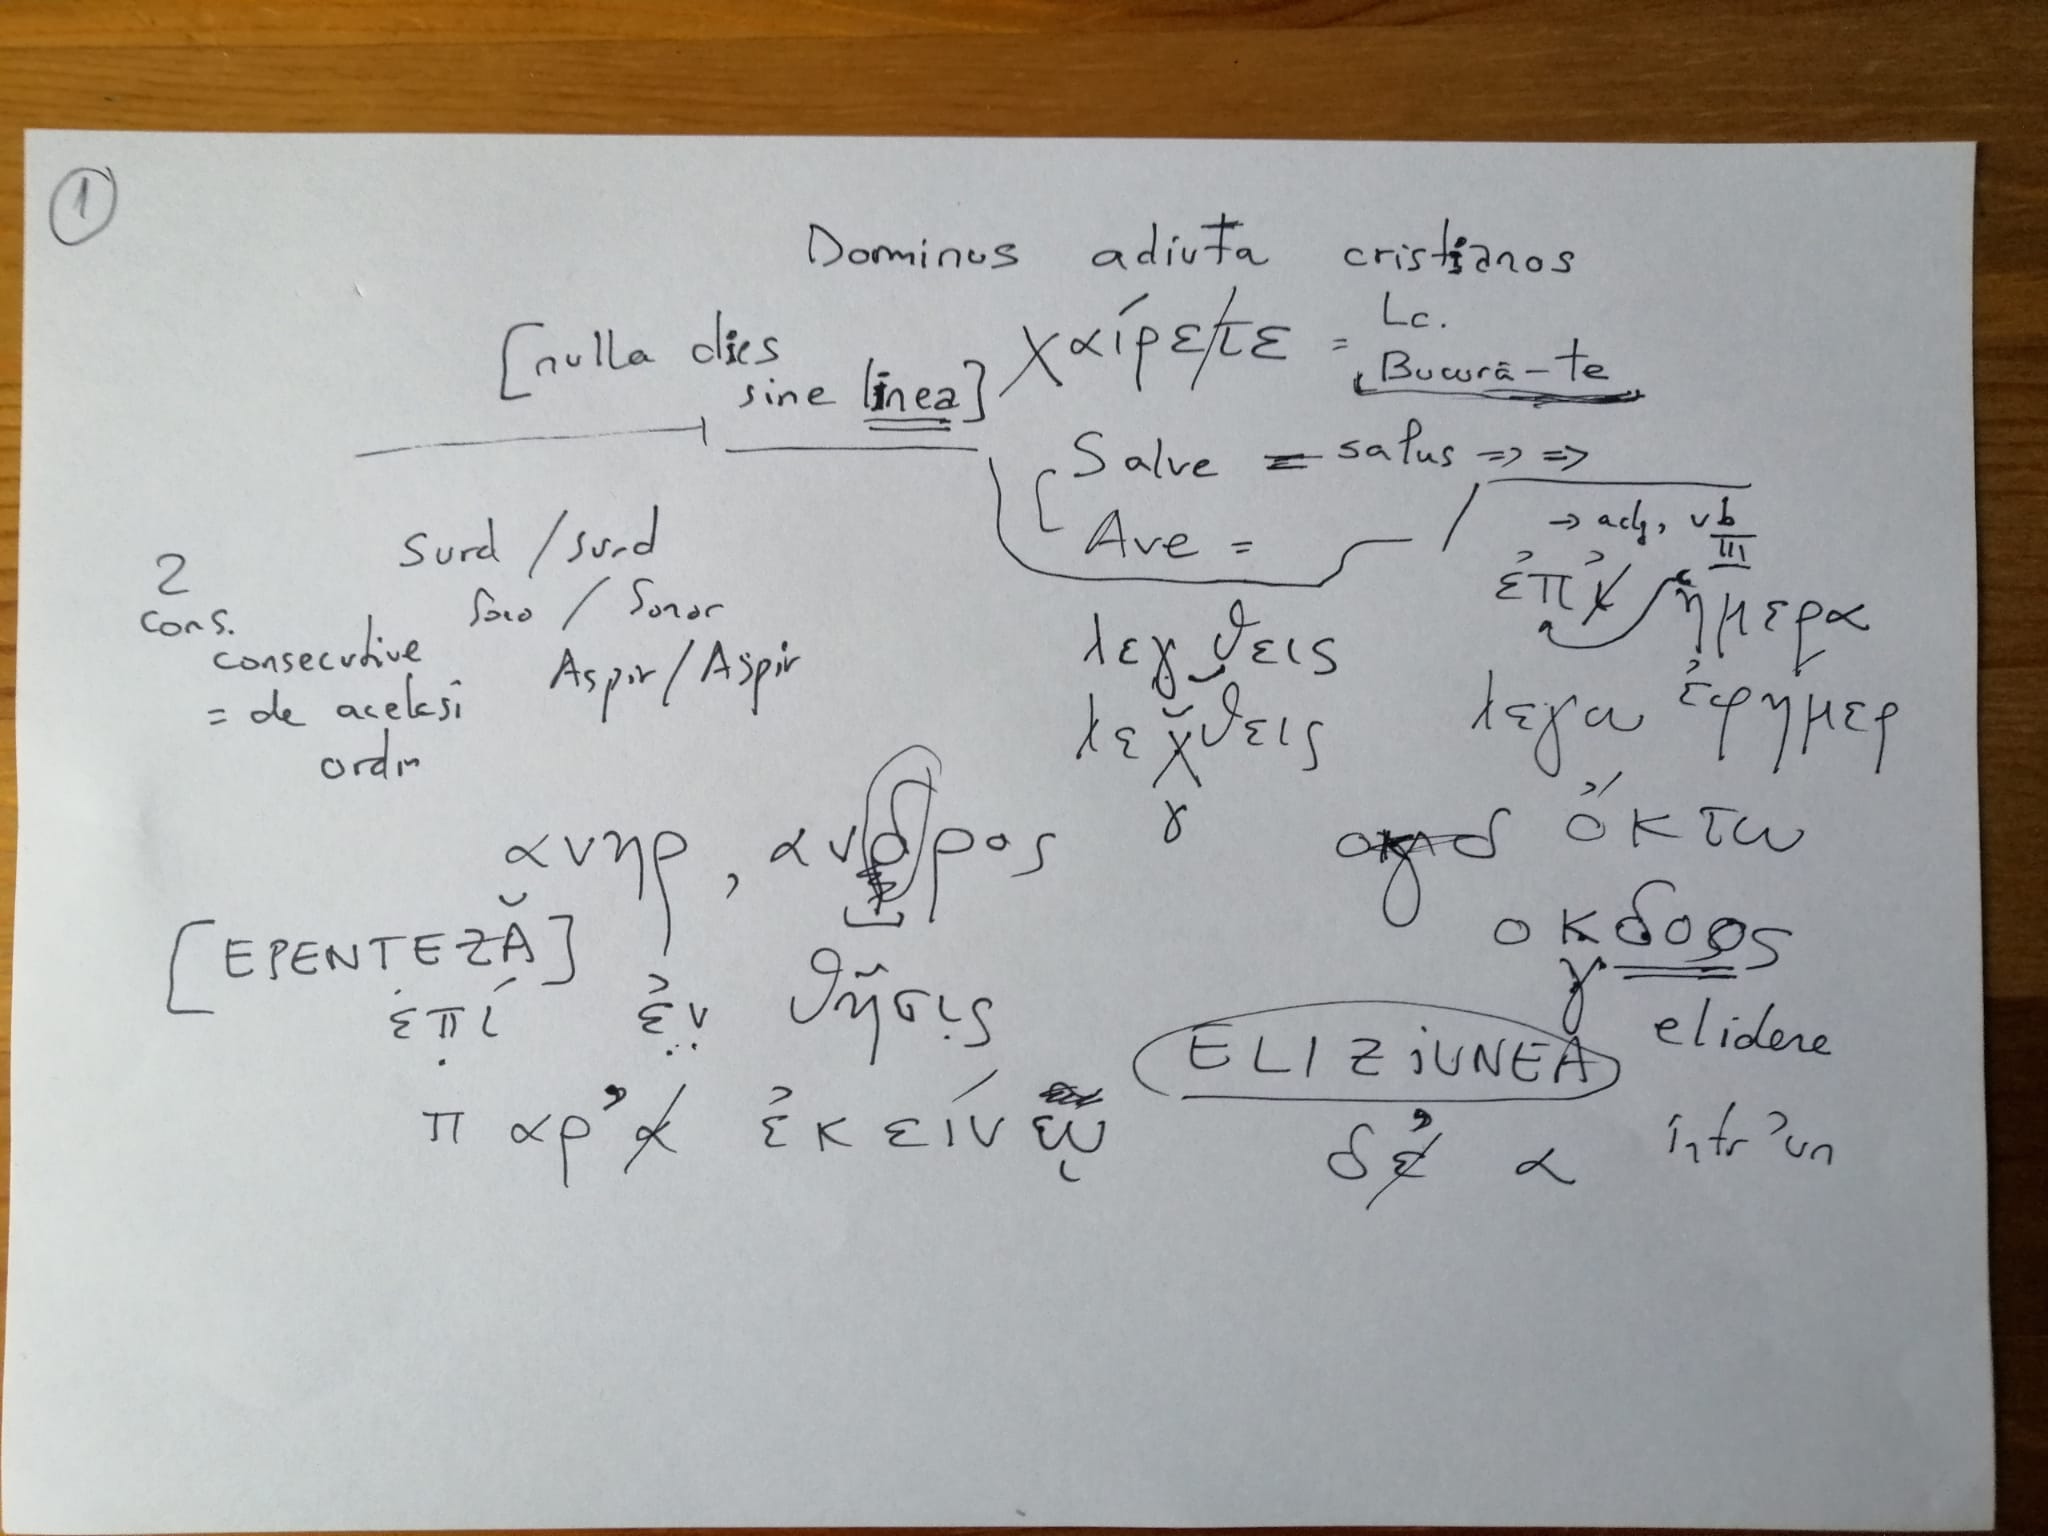 1
Dominus adiuta cristianos
[nulla dies
sine linea]
χαίρετε =
Lc.
Bucură-te
Salve = salus => =>
Ave =
→ adj, vb
III
2
cons.
consecutive
= de acelasi
ordin
Surd / surd
Sono / Sonor
Aspir / Aspir
ἐπ’ι ἡμερα
λεγθεις
λεχθεις
γ
λεγω ἐφημερ
ανηρ, ανδρος
ὄκτω
οκδοος
γ
[EPENTEZĂ]
ἐπί ἐν θῆσις
ELIZIUNEA elidere
παρ’α ἐκείνῳ
δ’ε α într’un